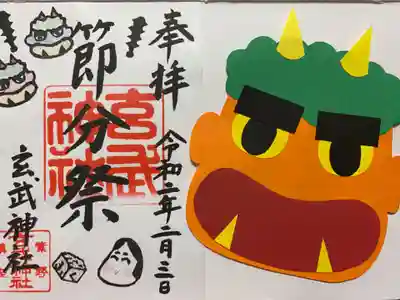 奉拝
令和二年二月三日
節分祭
玄武神社
玄武神社